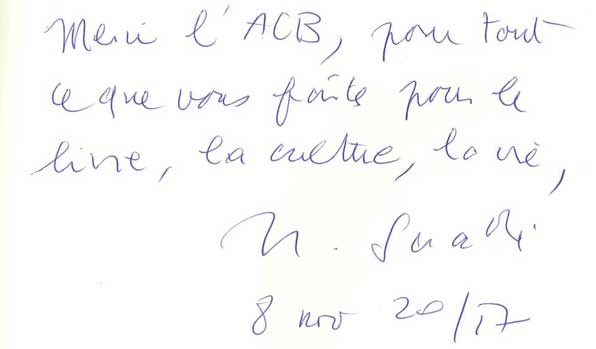 Merci l'ACB, pour tout
ce que vous faites pour le
livre, la culture, la vie,
8 nov 20/17